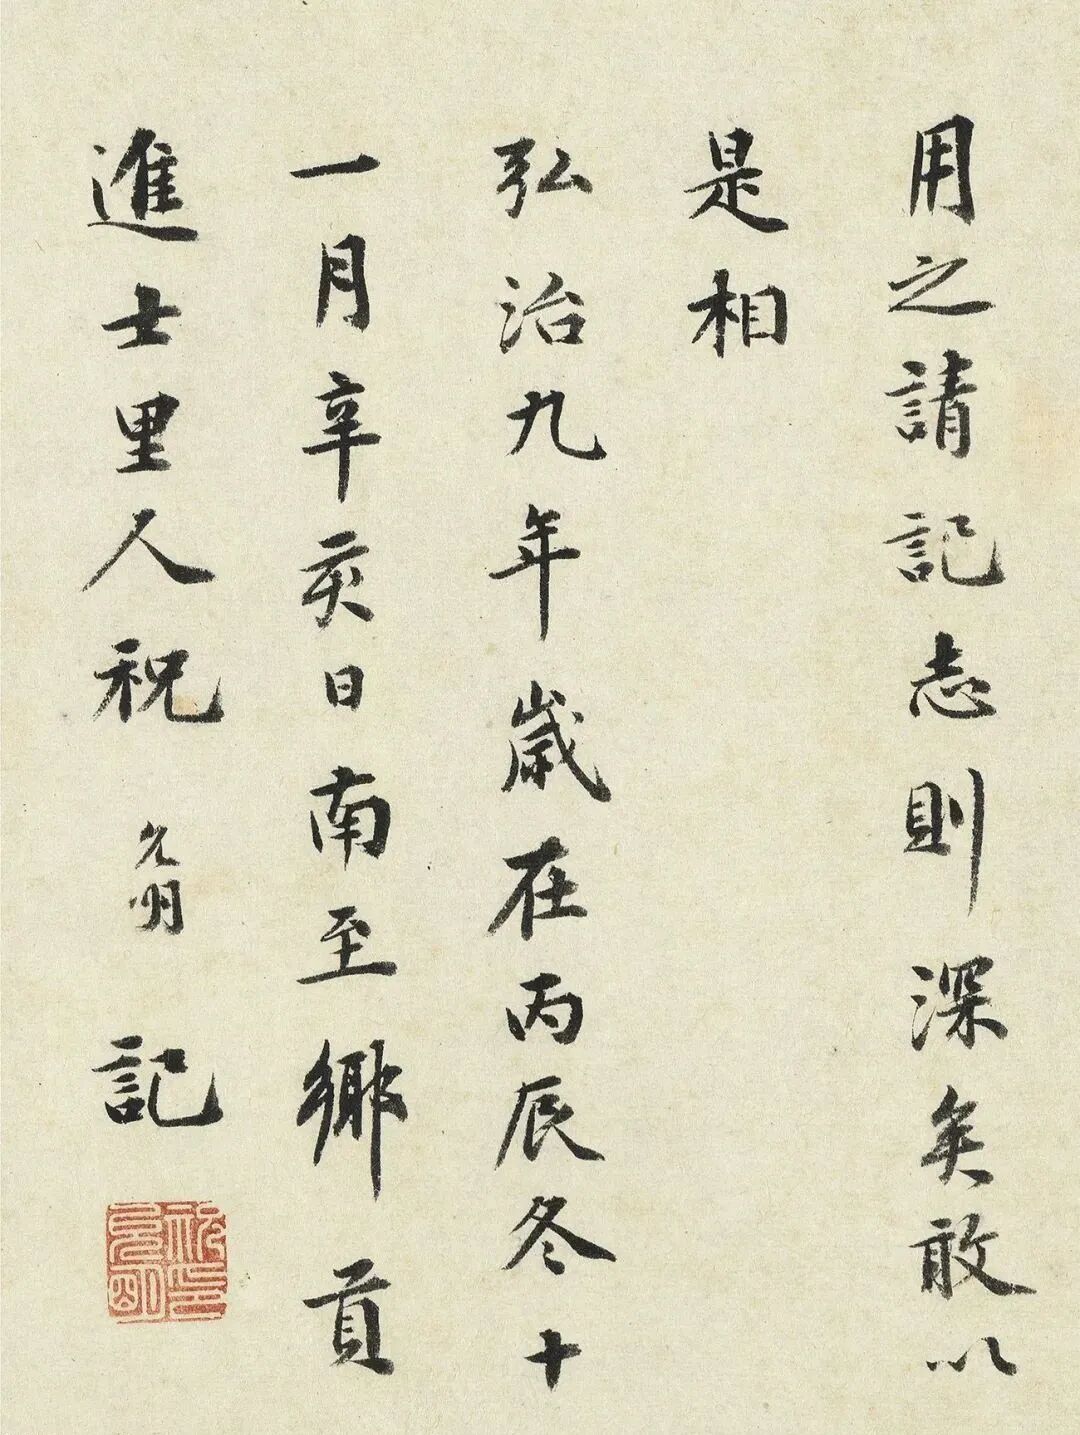 用之請記志則深矣敢以
是相
弘治九年歲在丙辰冬十
一月辛亥日南至鄉貢
進士里人祝允明記
祝允明印